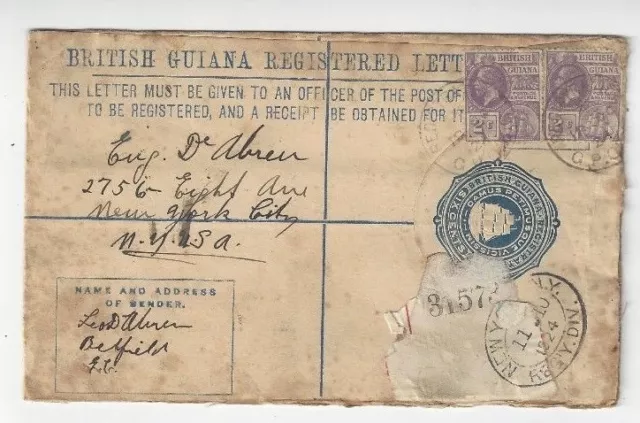 BRITISH GUIANA REGISTERED LETT
THIS LETTER MUST BE GIVEN TO AN OFFICER OF THE POST OF
TO BE REGISTERED, AND A RECEIPT BE OBTAINED FOR IT
BRITISH GUIANA
BRITISH GUIANA
2
2
G.P.O.
Eug. De Abreu
2756 Eight Ave
New York City
N.Y. USA.
BRITISH GUIANA
DAMUS PETIMUS QUE VICISSIM
SIX CENTS
NAME AND ADDRESS
OF SENDER.
Leo D'Abreu
Belfield
E.C.
31573
NEW YORK, N.Y.
11 - 10
1924
REG'Y. DIV.